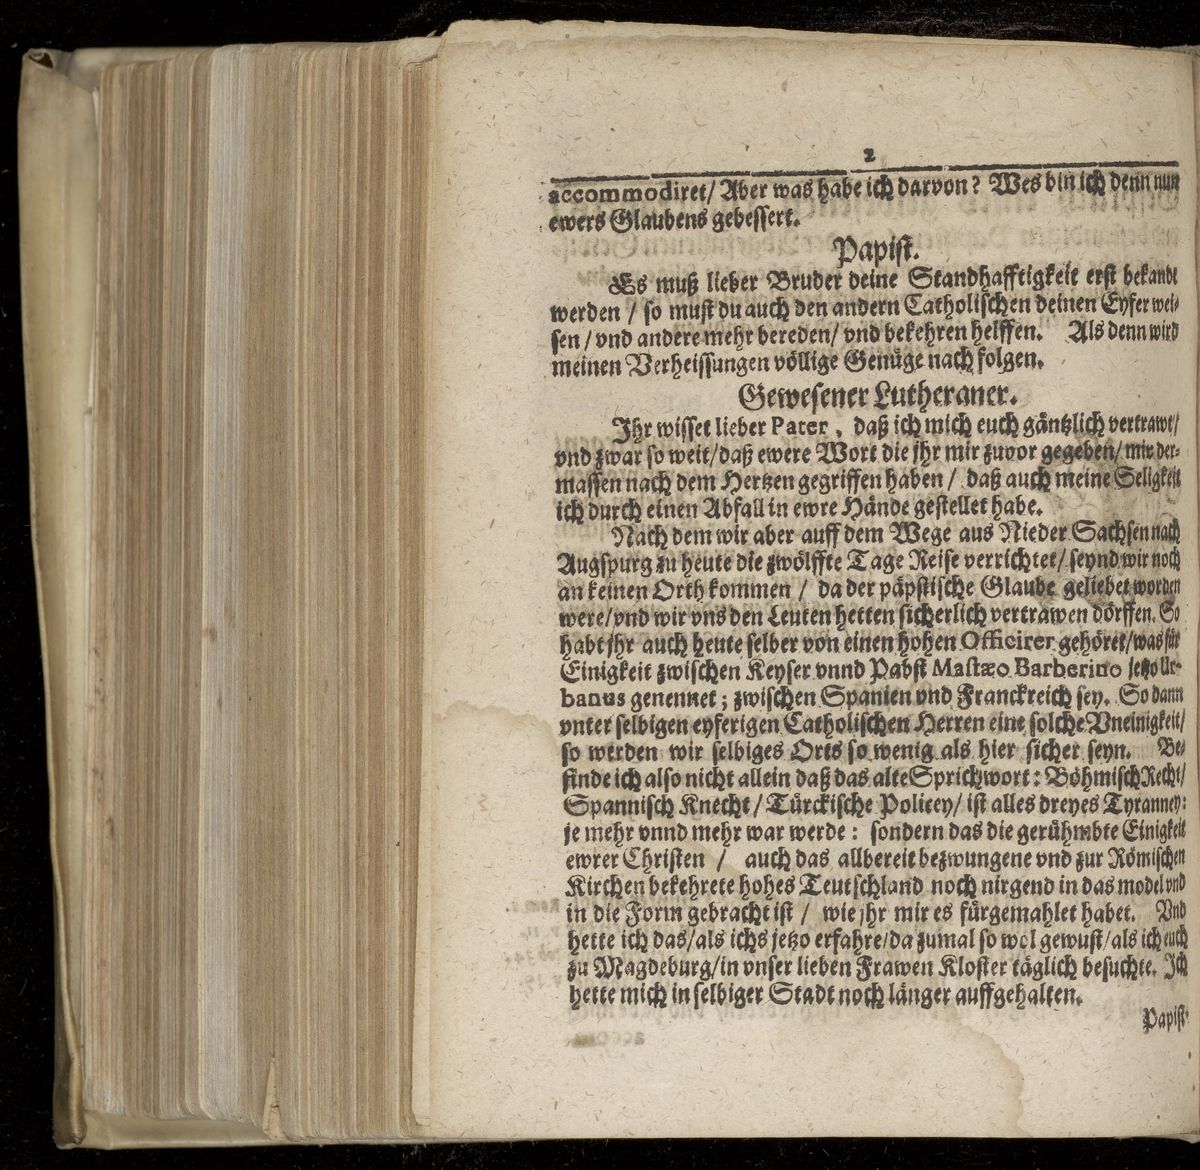 2
accommodiret/ Aber was habe ich darvon? Wes bin ich denn nun
ewers Glaubens gebessert.
Papist.
Es muß lieber Bruder deine Standhafftigkeit erst bekandt
werden / so must du auch den andern Catholischen deinen Eyfer wei-
sen / vnd andere mehr bereden/ vnd bekehren helffen. Als denn wird
meinen Verheissungen völlige Genüge nach folgen.
Gewesener Lutheraner.
Ihr wisset lieber Pater, daß ich mich euch gäntzlich vertrawt/
vnd zwar so weit/daß ewere Wort die jhr mir zuvor gegeben/ mir der-
massen nach dem Hertzen gegriffen haben / daß auch meine Seligkeit
ich durch einen Abfall in ewre Hände gestellet habe.
Nach dem wir aber auff dem Wege aus Nieder Sachsen nach
Augspurg zu heute die zwölffte Tage Reise verrichtet/ seynd wir noch
an keinen Orth kommen / da der päpstische Glaube geliebet worden
were/vnd wir vns den Leuten hetten sicherlich vertrawen dörffen. So
habt jhr auch heute selber von einen hohen Officirer gehöret/was für
Einigkeit zwischen Keyser vnnd Pabst Mastæo Barberino jetzo Ur-
banus genennet; zwischen Spanien vnd Franckreich sey. So dann
vnter selbigen eyferigen Catholischen Herren eine solche Vneinigkeit/
so werden wir selbiges Orts so wenig als hier sicher seyn. Be-
finde ich also nicht allein daß das alte Sprichwort: Böhmisch Recht/
Spannisch Knecht/ Türckische Policey/ ist alles dreyes Tyranney:
je mehr vnnd mehr war werde: sondern das die gerühmbte Einigkeit
ewrer Christen / auch das allbereit bezwungene vnd zur Römischen
Kirchen bekehrete hohes Teutschland noch nirgend in das model vnd
in die Form gebracht ist / wie jhr mir es fürgemahlet habet. Vnd
hette ich das/als ichs jetzo erfahre/da zumal so wol gewust/als ich euch
zu Magdeburg/in vnser lieben Frawen Kloster täglich besuchte. Ich
hette mich in selbiger Stadt noch länger auffgehalten.
Papist